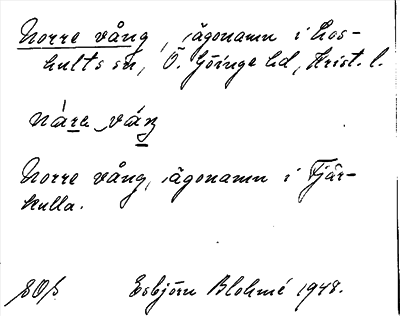 Norre vång, ägonamn i Los-
hults sn, Ö. Göinge hd, Krist. l.
nárе váŋ
Norre vång, ägonamn i Fjär-
kulla.
Esbjörn Blohmé 1948.